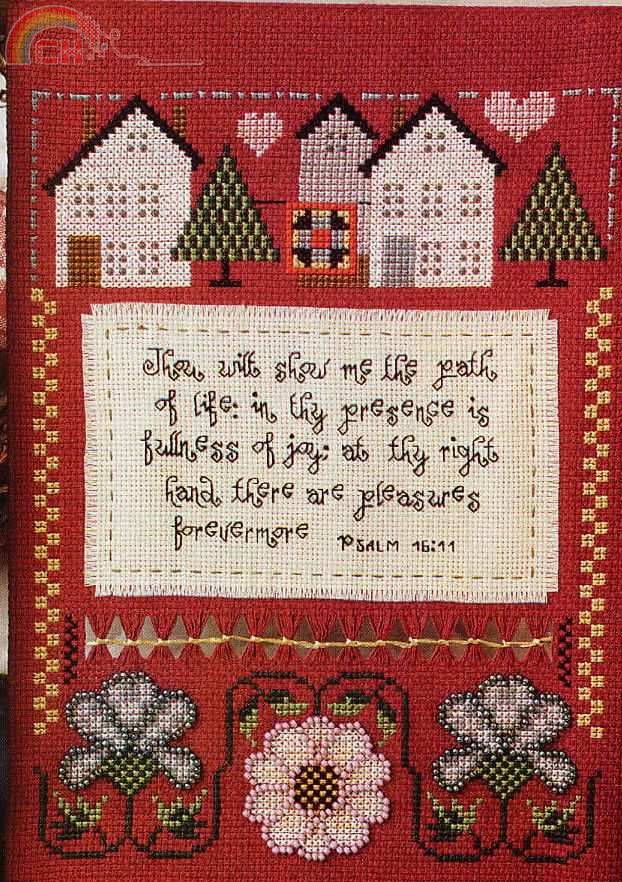 Thou wilt show me the path
of life: in thy presence is
fullness of joy: at thy right
hand there are pleasures
forevermore PSALM 16:11